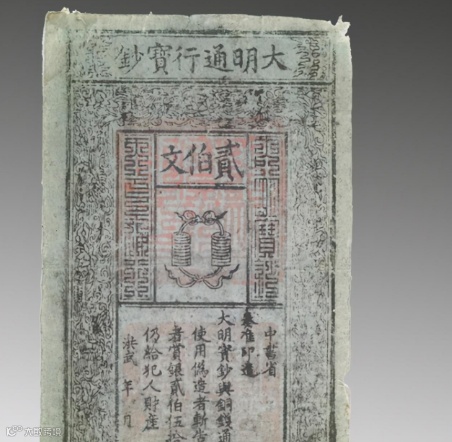 大明通行寶鈔
貳伯文
中書省
奏准印造
大明寶鈔與銅錢通
使用偽造者斬告
者賞銀貳伯伍拾
仍給犯人財產
洪武 年 月